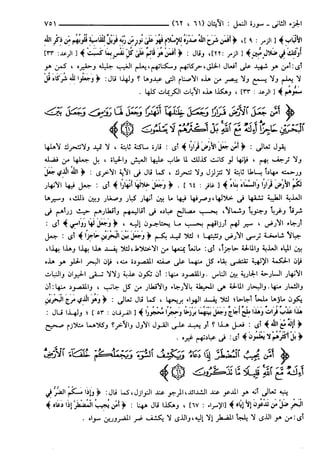 الجزء الثاني ـ سورة النمل : الآيتان (٦١ ، ٦٢) ٧٥١
الألباب ﴾ [ الزمر : ٩] ، ﴿ أفمن شرح الله صدره للإسلام فهو على نور من ربه فويل للقاسية قلوبهم من ذكر الله
أولئك في ضلال مبين ﴾ [ الزمر : ٢٢] ، وقال : ﴿ أفمن هو قائم على كل نفس بما كسبت ﴾ [ الرعد : ٣٣]
أي : أمن هو شهيد على أفعال الخلق ، حركاتهم وسكناتهم ، يعلم الغيب جليله وحقيره ، كمن هو
لا يعلم ولا يسمع ولا يبصر من هذه الأصنام التي عبدوها ؟ ولهذا قال : ﴿ وجعلوا لله شركاء قل
سموهم ﴾ [ الرعد : ٣٣] ، وهكذا هذه الآيات الكريمات كلها .
أمن جعل الأرض قرارا وجعل خلالها أنهارا وجعل لها رواسي وجعل بين
البحرين حاجزا أءله مع الله بل أكثرهم لا يعلمون
يقول تعالى : ﴿ أمن جعل الأرض قرارا ﴾ أي : قارة ساكنة ثابتة ، لا تميد ولا تتحرك بأهلها
ولا ترجف بهم ، فإنها لو كانت كذلك لما طاب عليها العيش والحياة ، بل جعلها من فضله
ورحمته مهاداً بساطاً ثابتة لا تتزلزل ولا تتحرك ، كما قال في الآية الأخرى : ﴿ الله الذي جعل
لكم الأرض قرارا والسماء بناء ﴾ [ غافر : ٦٤] . ﴿ وجعل خلالها أنهارا ﴾ أي : جعل فيها الأنهار
العذبة الطيبة تشقها في خلالها ، وصرفها فيها ما بين أنهار كبار وصغار وبين ذلك ، وسيرها
شرقاً وغرباً وجنوباً وشمالاً ، بحسب مصالح عباده في أقاليمهم وأقطارهم حيث ذرأهم في
أرجاء الأرض ، سير لهم أرزاقهم بحسب ما يحتاجون إليه ، ﴿ وجعل لها رواسي ﴾ أي :
جبالاً شامخة ترسي الأرض وتثبتها ، لئلا تميد بكم ﴿ وجعل بين البحرين حاجزا ﴾ أي : جعل
بين المياه العذبة والمالحة حاجزاً ، أي : مانعاً يمنعها من الاختلاط ، لئلا يفسد هذا بهذا وهذا بهذا ،
فإن الحكمة الإلهية تقتضي بقاء كل منهما على صفته المقصودة منه ، فإن البحر الحلو هو هذه
الأنهار السارحة الجارية بين الناس . والمقصود منها : أن تكون عذبة زلالاً تسقى الحيوان والنبات
والثمار منها . والبحار المالحة هي المحيطة بالأرجاء والأقطار من كل جانب ، والمقصود منها : أن
يكون ماؤها ملحاً أجاجاً ؛ لئلا يفسد الهواء بريحها ، كما قال تعالى : ﴿ وهو الذي مرج البحرين
هذا عذب فرات وهذا ملح أجاج وجعل بينهما برزخا وحجرا محجورا ﴾ [ الفرقان : ٥٣] ؛ ولهذا قال :
﴿ أءله مع الله ﴾ أي : فعل هذا ؟ أو يعبد على القول الأول والآخر ؟ وكلاهما متلازم صحيح
﴿ بل أكثرهم لا يعلمون ﴾ أي : في عبادتهم غيره .
أمن يجيب المضطر إذا دعاه ويكشف السوء ويجعلكم خلفاء الأرض
أءله مع الله قليلا ما تذكرون
ينبه تعالى أنه هو المدعو عند الشدائد ، المرجو عند النوازل ، كما قال : ﴿ وإذا مسكم الضر في
البحر ضل من تدعون إلا إياه ﴾ [ الإسراء : ٦٧] ، وهكذا قال ههنا : ﴿ أمن يجيب المضطر إذا دعاه ﴾
أي : من هو الذي لا يلجأ المضطر إلا إليه ، والذي لا يكشف ضر المضرورين سواه .